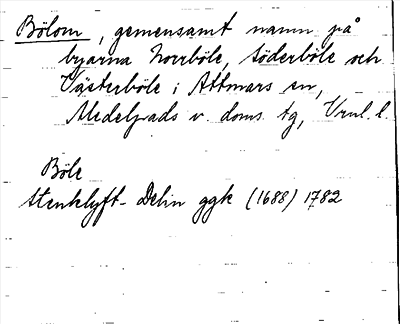 Bölom, gemensamt namn på
byarna Norrböle, Söderböle och
Västerböle i Attmars sn,
Medelpads v. doms. tg, Vrnl. l.
Böle
Stenklyft-Delin ggk (1688) 1782